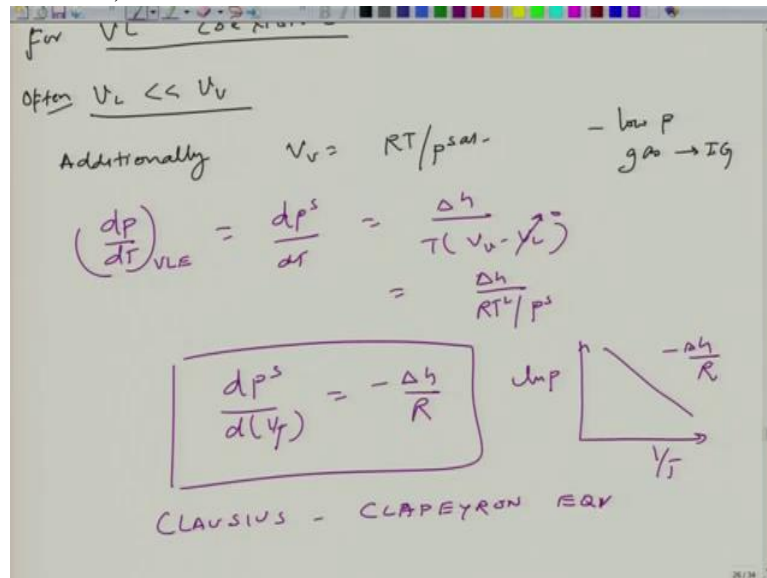 For VL
Often V_L << V_V
Additionally V_V = RT/p^sat - low p
gas → IG
(dp/dT)_VLE = dp^s/dT = Δh/T(V_V - V_L) 0
= Δh/RT²/p^s
dp^s/d(1/T) = - Δh/R
ln p - Δh/R
1/T
CLAUSIUS - CLAPEYRON EQN
26/34